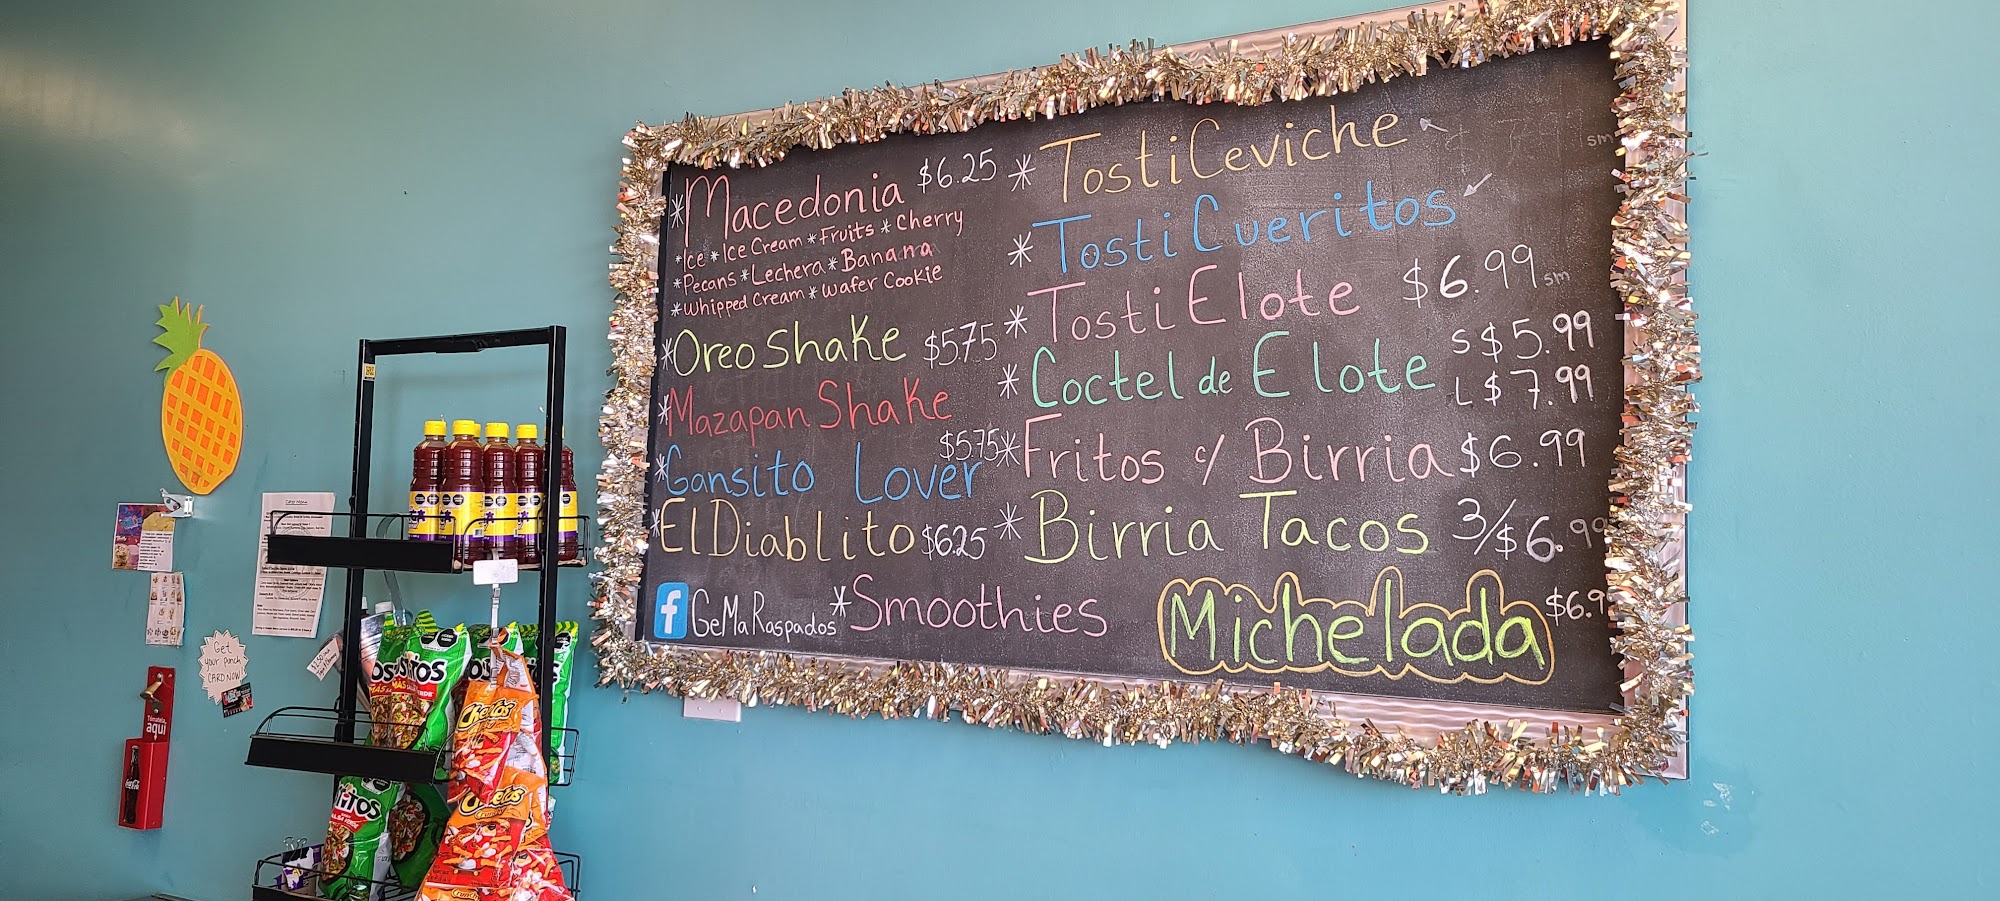 *Macedonia $6.25
*Ice *Ice Cream *Fruits *Cherry
*Pecans *Lechera *Banana
*Whipped Cream *Wafer Cookie
*Oreo Shake $5.75
*Mazapan Shake
$5.75
*Gansito Lover
*El Diablito $6.25
f GeMa Raspados
*TostiCeviche
sm
*Tosti Cueritos
*Tosti Elote $6.99 sm
*Coctel de Elote S $5.99
L $7.99
*Fritos c/ Birria $6.99
*Birria Tacos 3/$6.99
*Smoothies
Michelada $6.9
Get
your punch
CARD NOW
Tómatela
aquí
Coca-Cola
TOSTITOS
SALSA VERDE
Cheetos
Cheetos
Crunchy
TITOS
SALSA VERDE